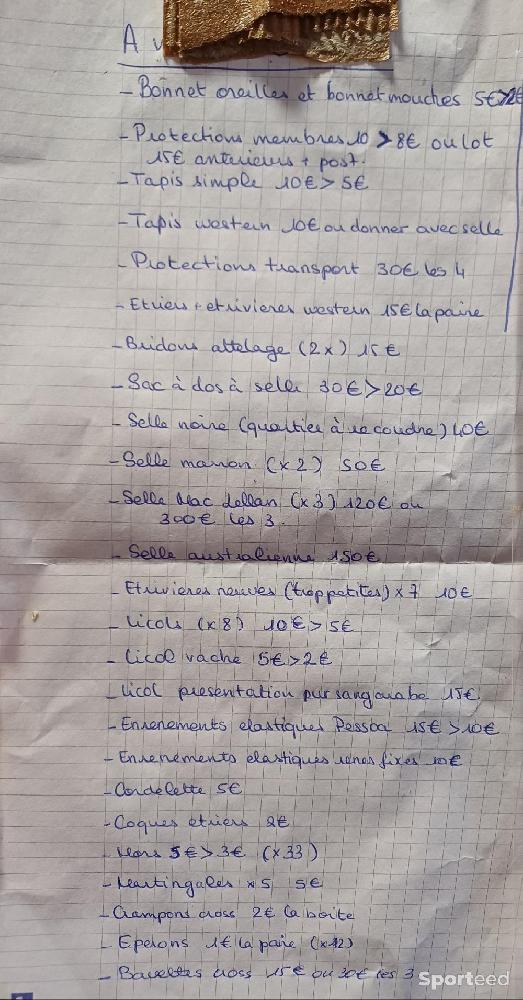 A v
- Bonnet oreilles et bonnet mouches 5€>2€
- Protections membres 10 > 8€ ou lot
15€ antérieurs + post.
- Tapis simple 10€ > 5€
- Tapis western 10€ ou donner avec selle
- Protections transport 30€ les 4
- Etriers + etrivieres western 15€ la paire
- Bridons attelage (2x) 15€
- Sac à dos à selle 30€ > 20€
- Selle noire (quartier à recoudre) 40€
- Selle marron (x2) 50€
- Selle Mac dellan (x3) 120€ ou
300€ les 3.
- Selle australienne 150€
- Etrivieres neuves (trop patites) x 7 10€
- Licols (x8) 10€ > 5€
- Licol vache 5€ > 2€
- Licol presentation pur sang arabe 15€
- Enrenements elastiques Pessoa 15€ > 10€
- Enrenements elastiques renes fixes 10€
- Cordelette 5€
- Coques etriers 2€
- Mors 5€ > 3€ (x33)
- Martingales x5 5€
- Crampons cross 2€ la boite
- Eperons 1€ la paire (x12)
- Bavettes cross 15€ ou 30€ les 3
Sporteed